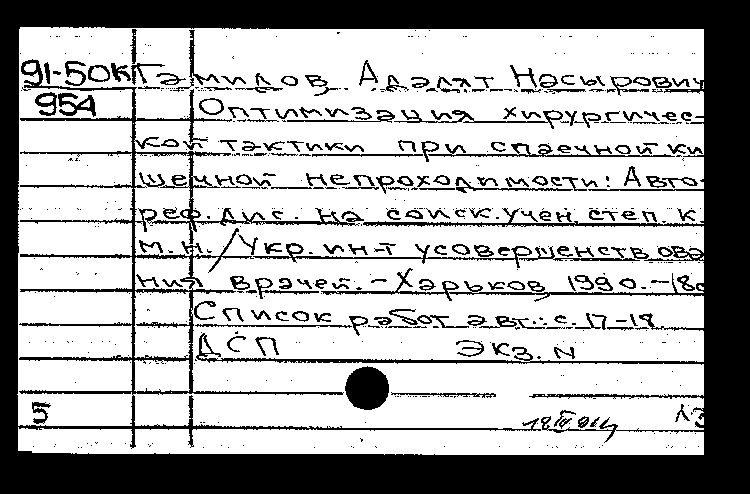 91-50к Гамидов Адалят Насырович
954 Оптимизация хирургичес-
кой тактики при спаечной ки
шечной непроходимости: Авто-
реф. дис. на соиск. учен. степ. к.
м.н. / Укр. ин-т усовершенствова
ния врачей. – Харьков, 1990. – 18с
Список работ авт.: с. 17-18
ДСП Экз. N
5